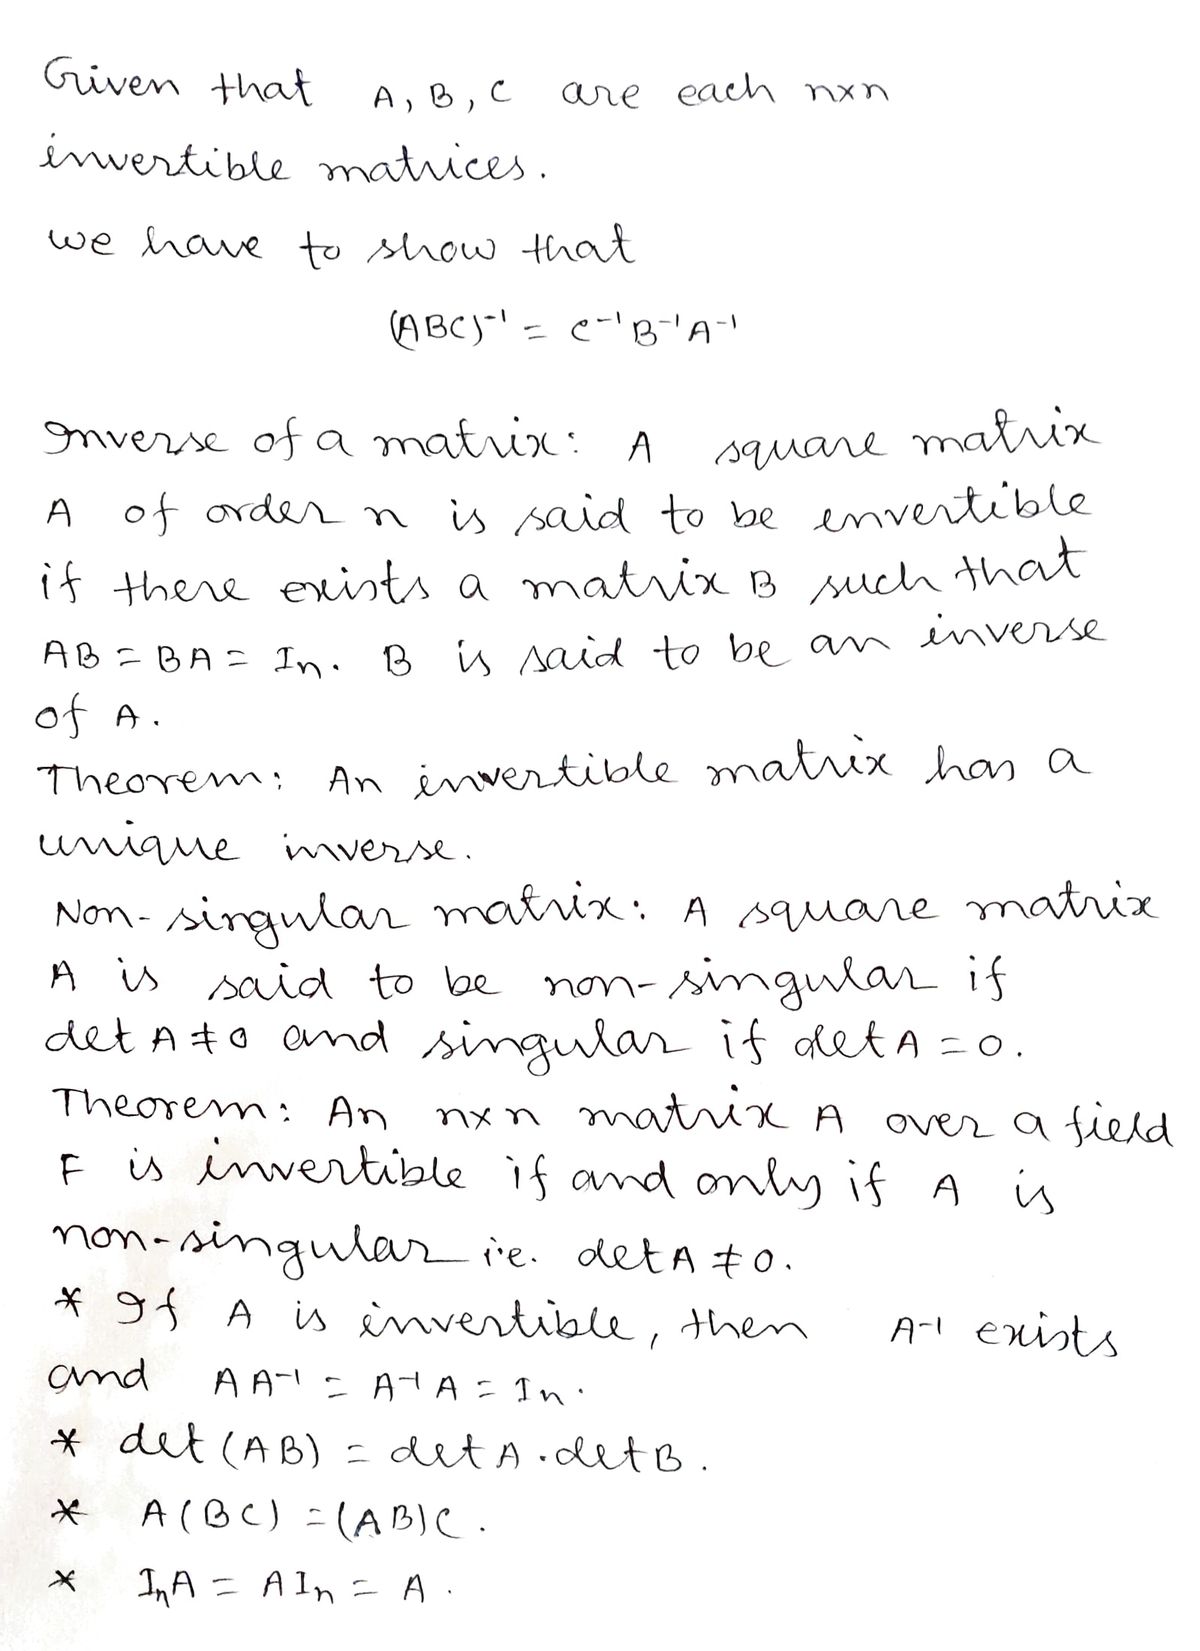 Given that A, B, C are each n×n
invertible matrices.
we have to show that
(ABC)⁻¹ = C⁻¹B⁻¹A⁻¹
Inverse of a matrix: A square matrix
A of order n is said to be envertible
if there exists a matrix B such that
AB = BA = In. B is said to be an inverse
of A.
Theorem: An invertible matrix has a
unique inverse.
Non-singular matrix: A square matrix
A is said to be non-singular if
det A ≠ 0 and singular if det A = 0.
Theorem: An n×n matrix A over a field
F is invertible if and only if A is
non-singular i.e. det A ≠ 0.
* If A is invertible, then A⁻¹ exists
and AA⁻¹ = A⁻¹A = In.
* det (AB) = det A . det B.
* A(BC) = (AB)C.
* InA = AIn = A.